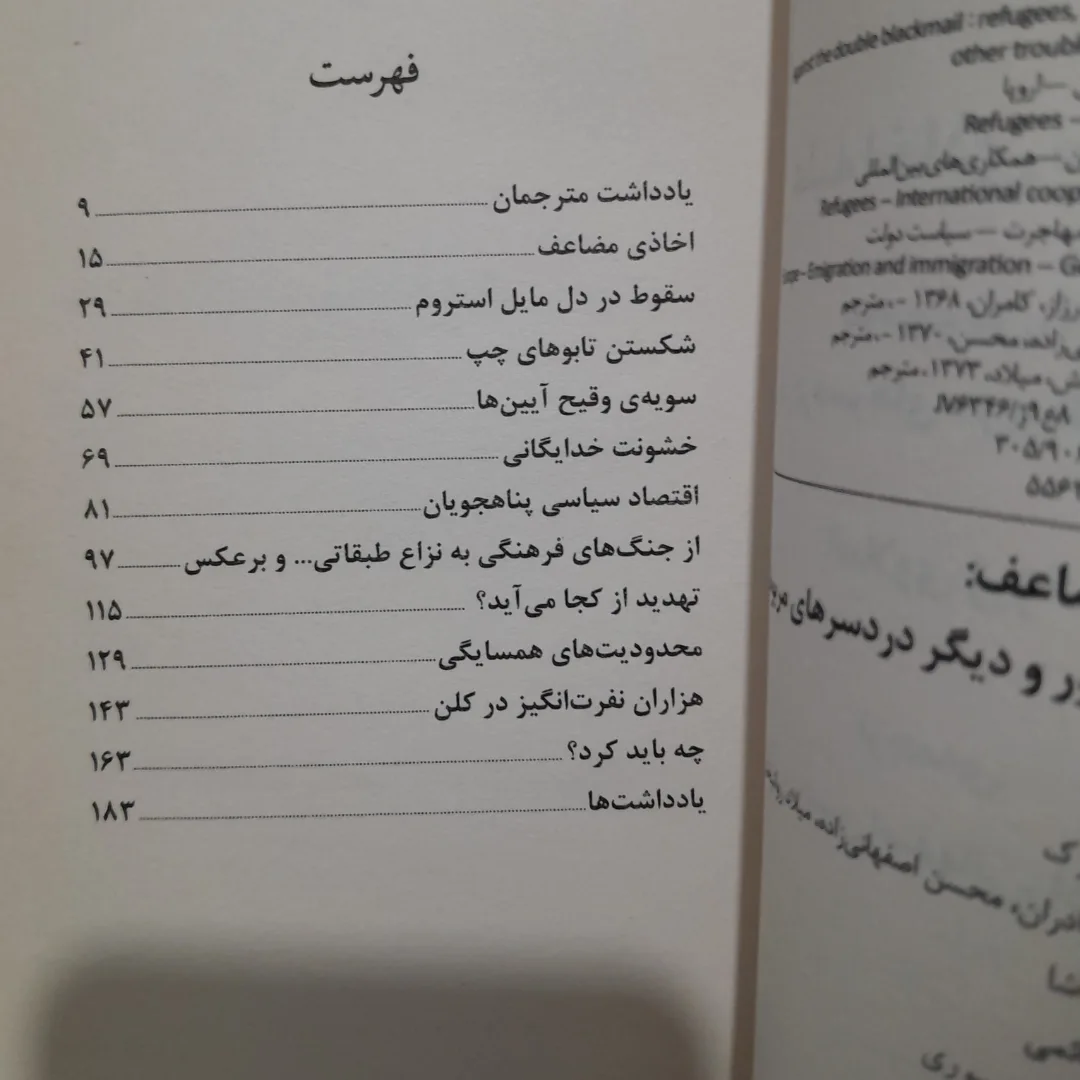 فهرست
یادداشت مترجمان ۹
اخاذی مضاعف ۱۵
سقوط در دل مایل استروم ۲۹
شکستن تابوهای چپ ۴۱
سویه‌ی وقیح آیین‌ها ۵۷
خشونت خدایگانی ۶۹
اقتصاد سیاسی پناهجویان ۸۱
از جنگ‌های فرهنگی به نزاع طبقاتی... و برعکس ۹۷
تهدید از کجا می‌آید؟ ۱۱۵
محدودیت‌های همسایگی ۱۲۹
هزاران نفرت‌انگیز در کلن ۱۴۳
چه باید کرد؟ ۱۶۳
یادداشت‌ها ۱۸۳
the double blackmail : refugees,
other
اروپا
Refugees –
همکاری‌های بین‌المللی
Refugees – International
مهاجرت — سیاست دولت
Emigration and immigration –
کامران، ۱۳۶۸ -، مترجم
محسن، ۱۳۷۰ -، مترجم
میلاد، ۱۳۷۳، مترجم
و دیگر دردسرهای
محسن اصفهانی‌زاده، میلاد